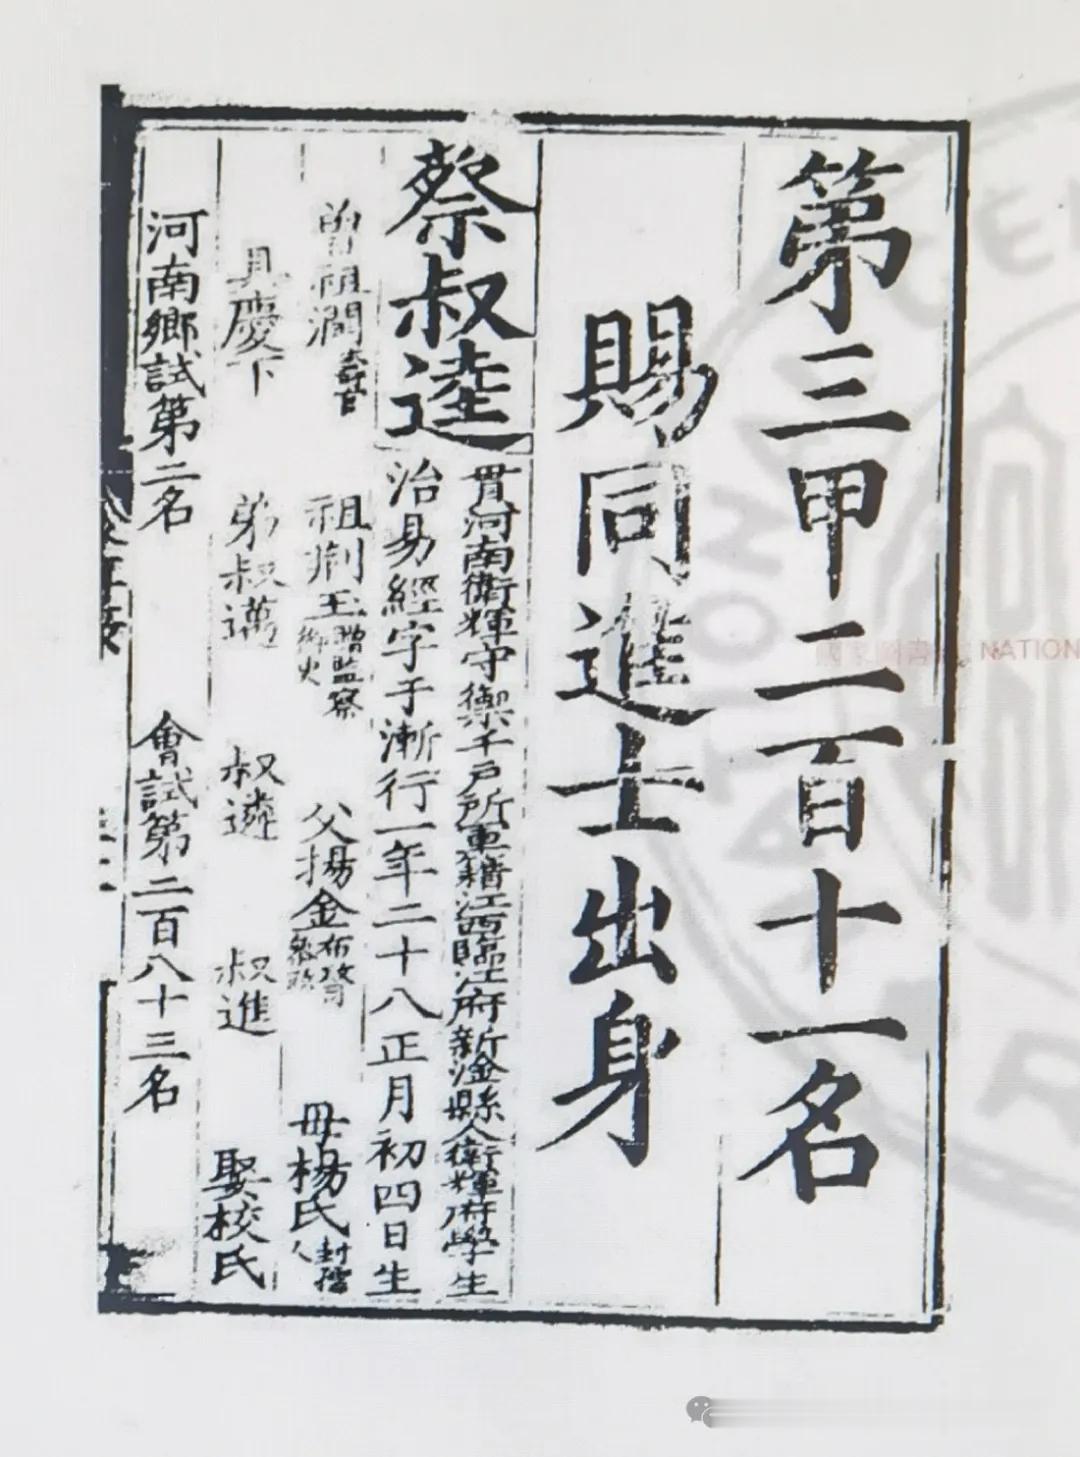 第三甲二百十一名
賜同進士出身
蔡叔逵
貫河南衛輝守禦千戶所軍籍江西臨江府新淦縣人衛輝府學生
治易經字于漸行一年二十八正月初四日生
曾祖潤壽官 祖荆玉贈監察御史 父揚金 母楊氏封孺人
具慶下 弟叔邁 叔遴 叔進 娶校氏
河南鄉試第二名 會試第二百八十三名
國家圖書館 NATION